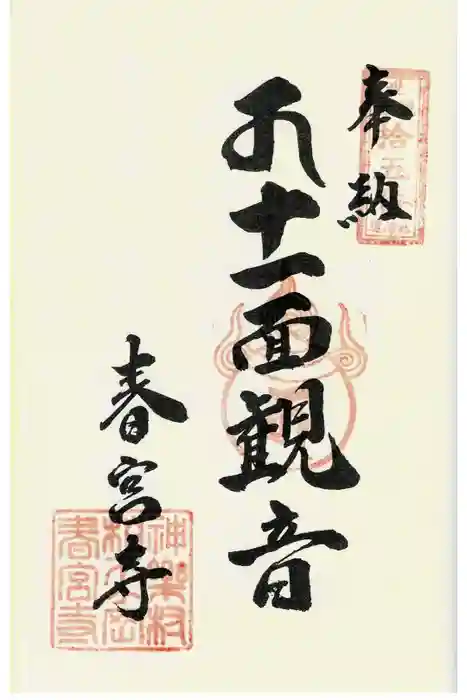 奉納
十一面観音
春宮寺
拾五
神楽村
春宮寺